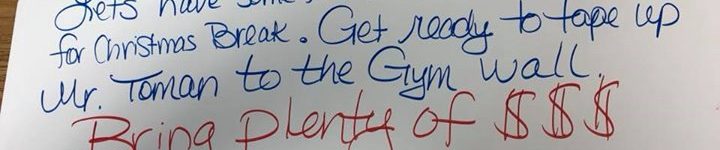 Let's have some
for Christmas Break. Get ready to tape up
Mr. Toman to the Gym wall.
Bring plenty of $ $ $